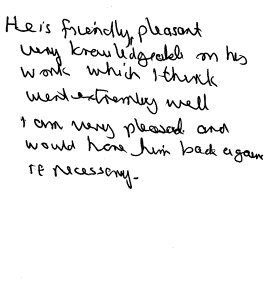 He is friendly, pleasant
very knowledgeable on his
work which I think
went extremley well
I am very pleased and
would have him back again
if necessary.